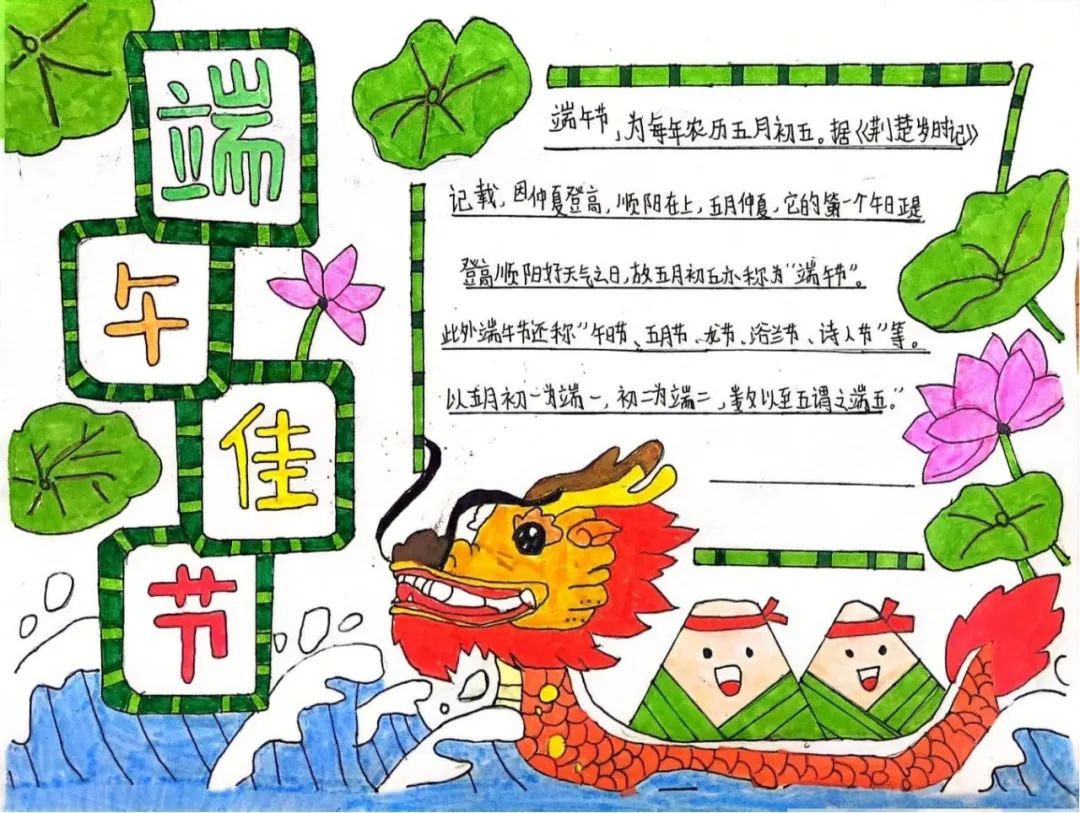 端
午
佳
节
端午节，为每年农历五月初五。据《荆楚岁时记》
记载，因仲夏登高，顺阳在上，五月仲夏，它的第一个午日正是
登高顺阳好天气之日，故五月初五亦称为“端午节”。
此外端午节还称“午日节、五月节、龙节、浴兰节、诗人节”等。
以五月初一为端一，初二为端二，数以至五谓之端五。”